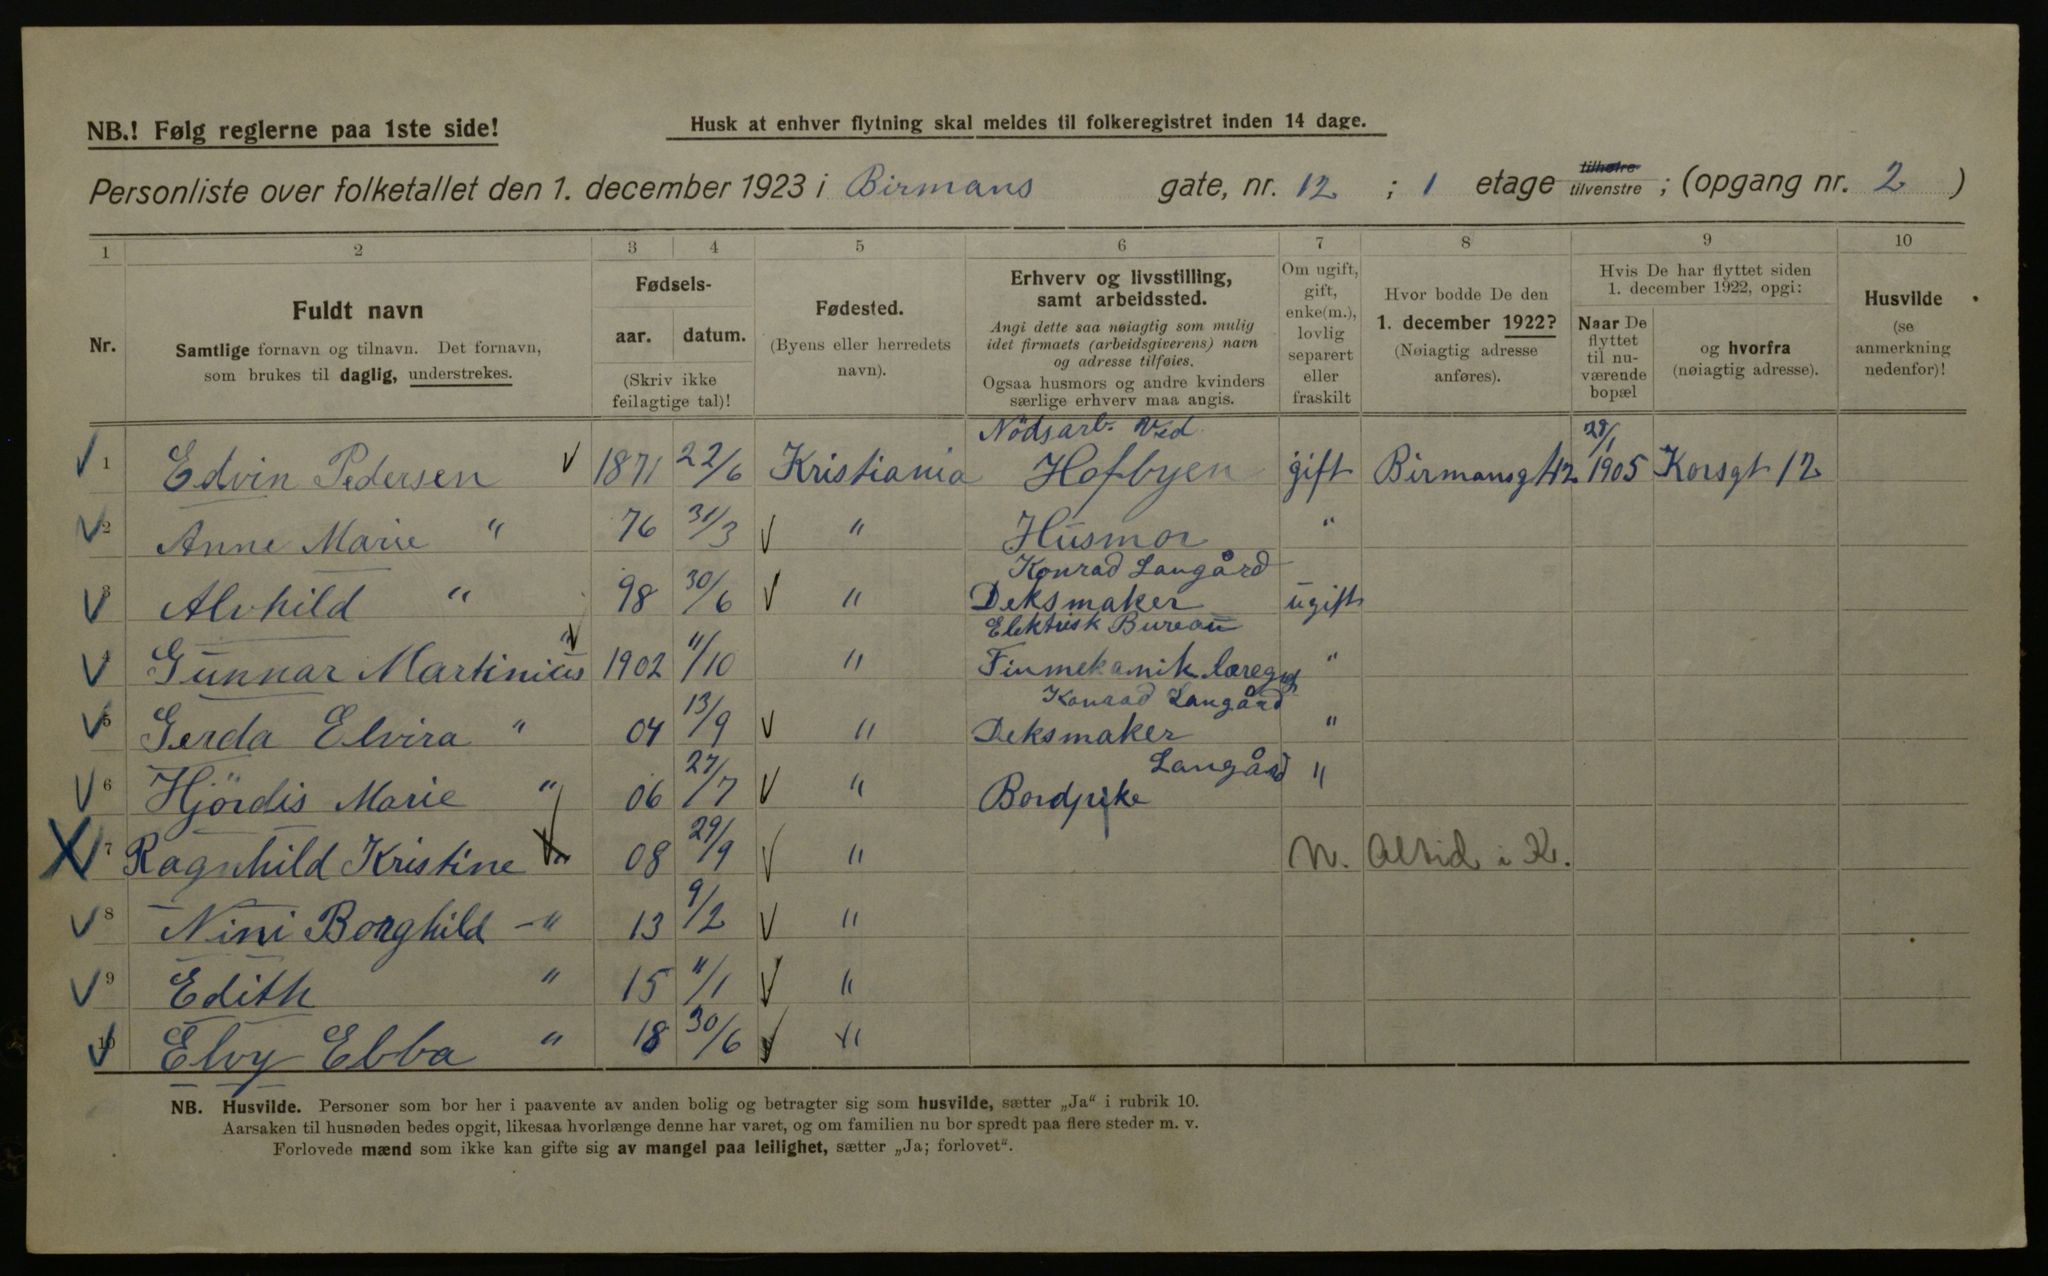 NB.! Følg reglerne paa 1ste side!
Husk at enhver flytning skal meldes til folkeregistret inden 14 dage.
Personliste over folketallet den 1. december 1923 i Birmans gate, nr. 12 ; 1 etage tilhøire tilvenstre ; (opgang nr. 2 )
1 2 3 4 5 6 7 8 9 10
Nr.
Fuldt navn
Samtlige fornavn og tilnavn. Det fornavn,
som brukes til daglig, understrekes.
Fødsels-
aar. datum.
(Skriv ikke
feilagtige tal)!
Fødested.
(Byens eller herredets
navn).
Erhverv og livsstilling,
samt arbeidssted.
Angi dette saa nøiagtig som mulig
idet firmaets (arbeidsgiverens) navn
og adresse tilføies.
Ogsaa husmors og andre kvinders
særlige erhverv maa angis.
Om ugift,
gift,
enke(m.),
lovlig
separert
eller
fraskilt
Hvor bodde De den
1. december 1922?
(Nøiagtig adresse
anføres).
Hvis De har flyttet siden
1. december 1922, opgi:
Naar De
flyttet
til nu-
værende
bopæl
og hvorfra
(nøiagtig adresse).
Husvilde
(se
anmerkning
nedenfor)!
Nödsarb. Ved
1 Edvin Pedersen 1871 22/6 Kristiania Hofbyen gift Birmansgt 12 1905 Korsgt 12
2 Anne Marie " 76 31/3 " Husmor "
Konrad Langård
3 Alvhild " 98 30/6 " Deksmaker ugift
Elektrisk Bureau
4 Gunnar Martinius " 1902 11/10 " Finmekanik "
Konrad Langård
5 Gerda Elvira " 04 13/9 " Deksmaker "
Langård
6 Hjördis Marie " 06 27/7 " Bordpike "
7 Ragnhild Kristine " 08 29/9 " N. Altid i K.
8 Nini Borghild -" 13 9/2 "
9 Edith " 15 11/1 "
10 Elvy Ebba " 18 30/6 "
NB. Husvilde. Personer som bor her i paavente av anden bolig og betragter sig som husvilde, sætter „Ja“ i rubrik 10.
Aarsaken til husnøden bedes opgit, likesaa hvorlænge denne har varet, og om familien nu bor spredt paa flere steder m. v.
Forlovede mænd som ikke kan gifte sig av mangel paa leilighet, sætter „Ja; forlovet“.